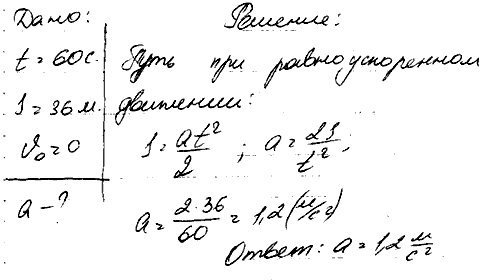 Дано:
t = 60 с.
S = 36 м.
V₀ = 0
a - ?
Решение:
Путь при равноускоренном
движении:
S = at²/2 ; a = 2S/t² ,
a = 2·36/60 = 1,2 (м/с²)
Ответ: a = 1,2 м/с²